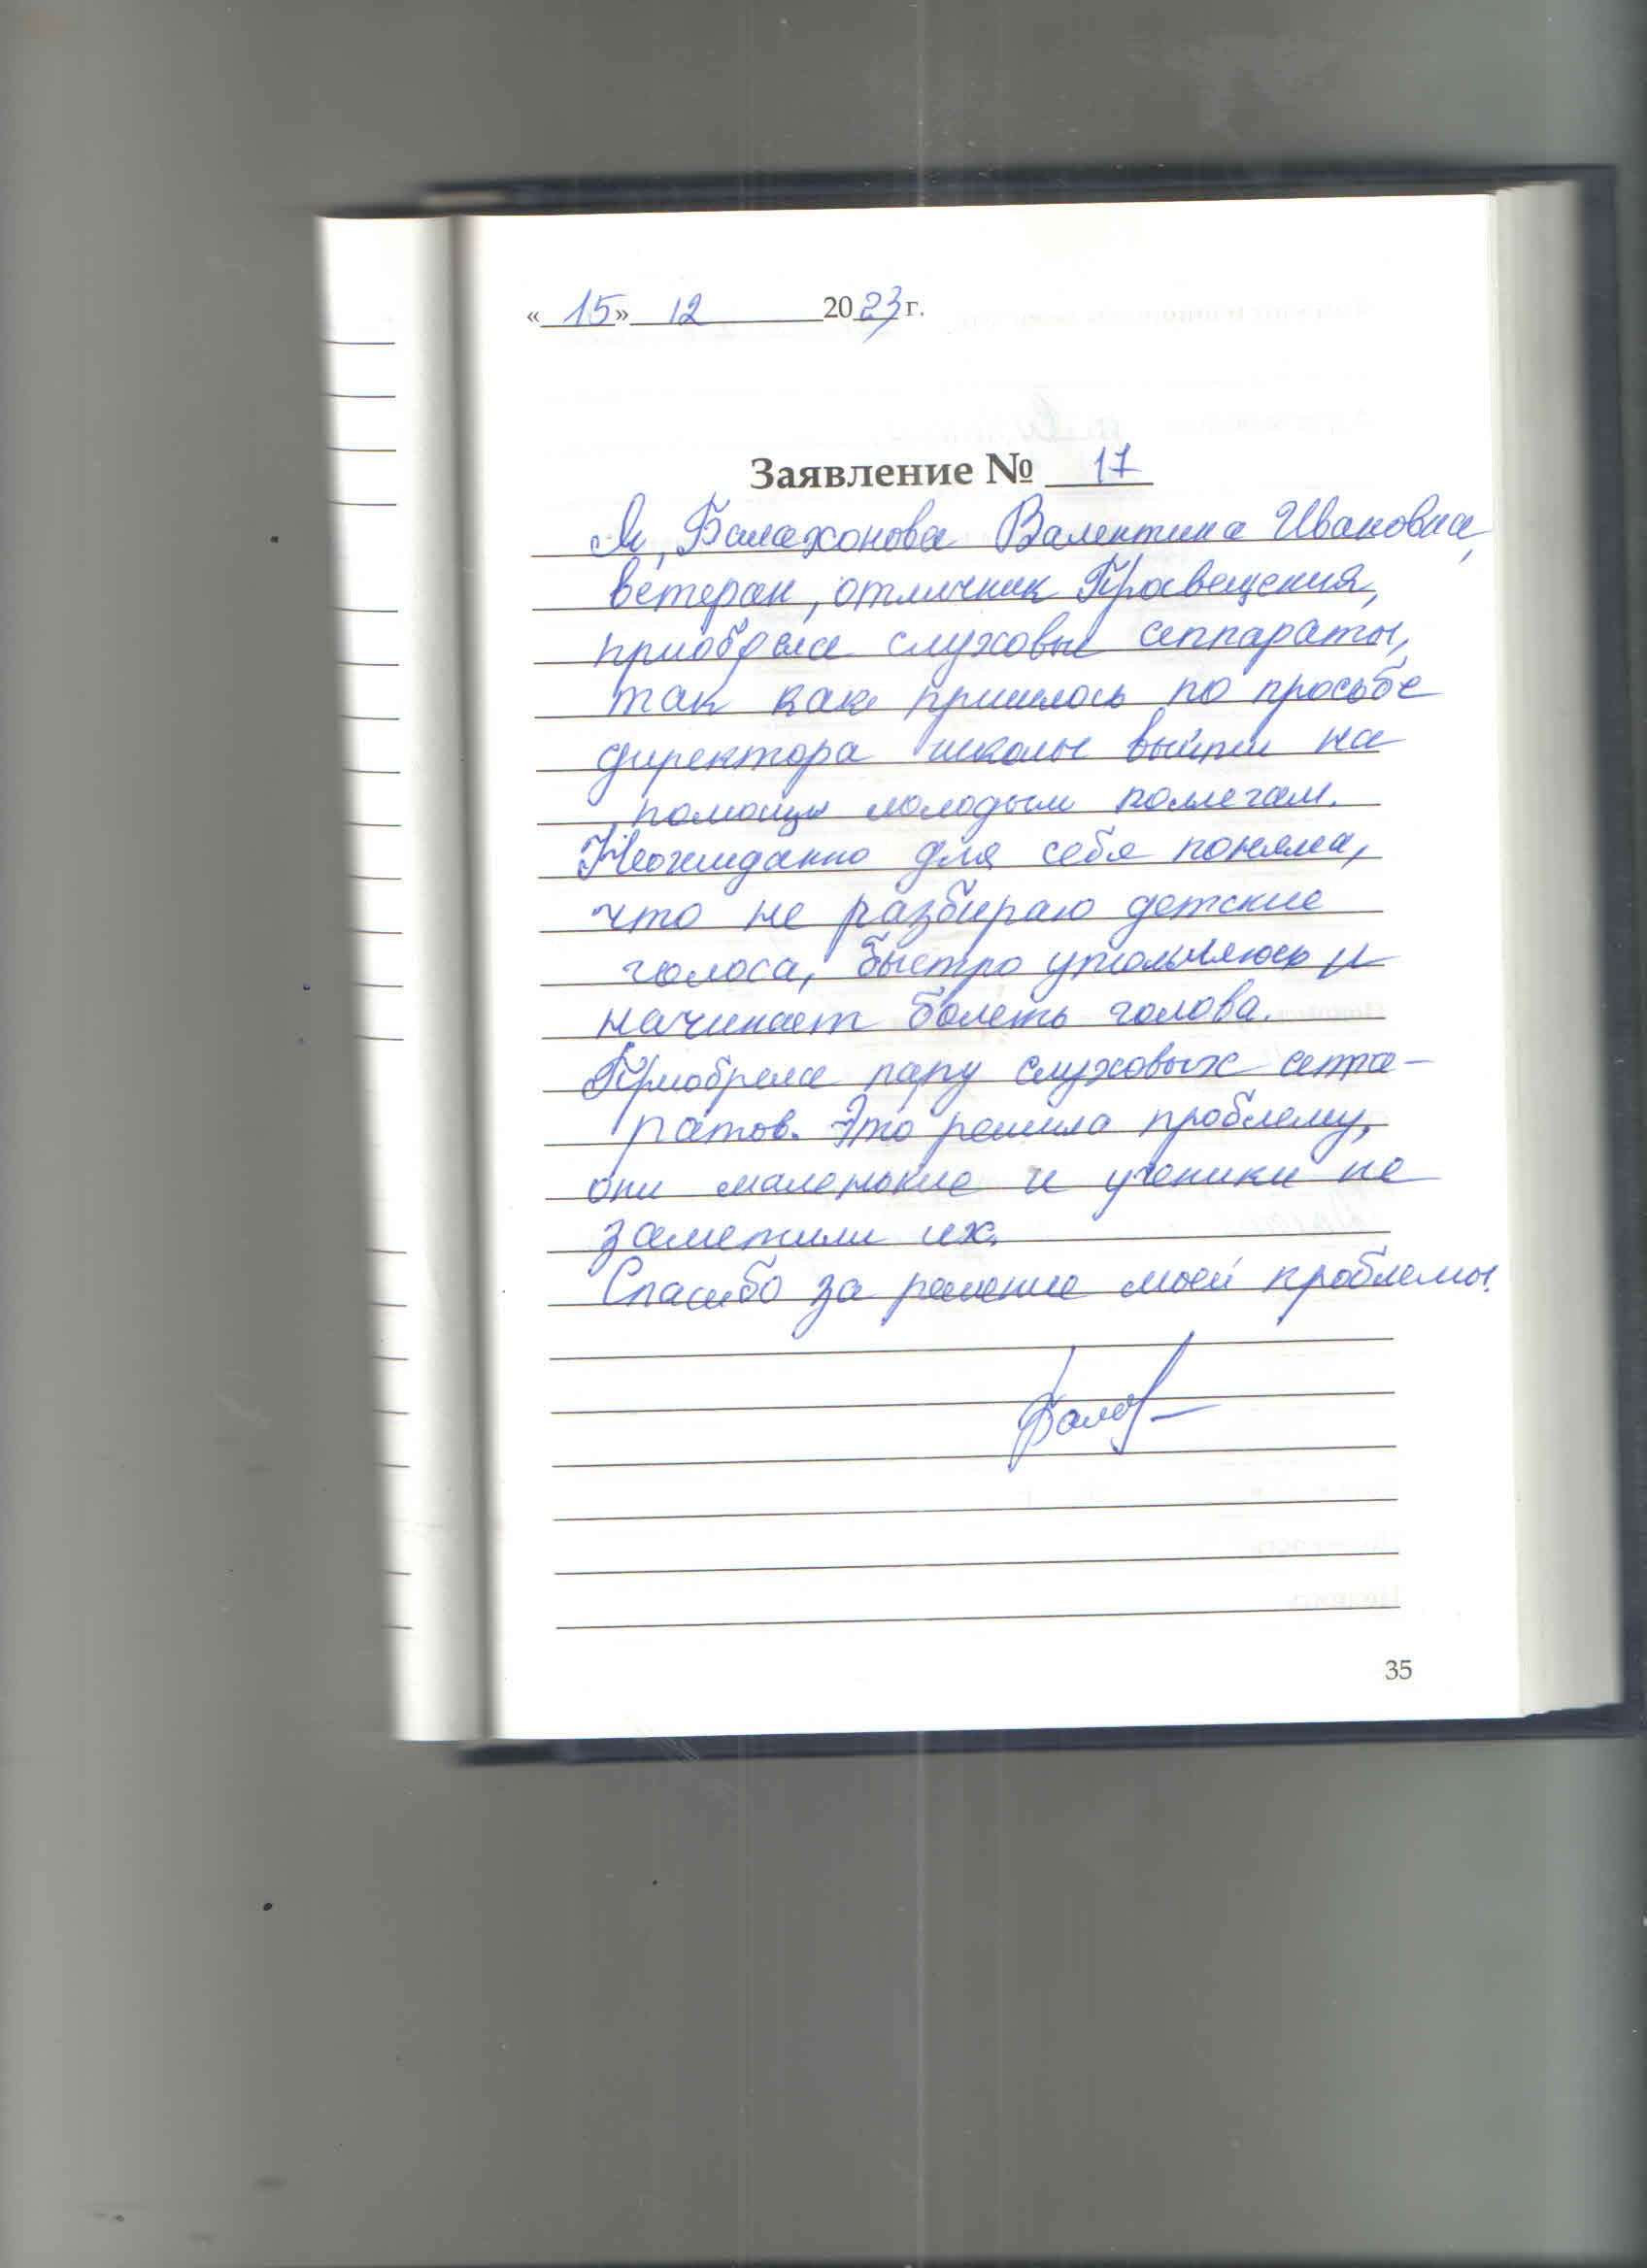 « 15 » 12 2023 г.
Заявление № 17
Я, Балахонова Валентина Ивановна,
ветеран, отличник Просвещения,
приобрела слуховые аппараты,
так как пришлось по просьбе
директора школы выйти на
помощь молодым коллегам.
Неожиданно для себя поняла,
что не разбираю детские
голоса, быстро утомляюсь и
начинает болеть голова.
Приобрела пару слуховых аппа-
ратов. Это решило проблему,
они маленькие и ученики не
заметили их.
Спасибо за решение моей проблемы.
35